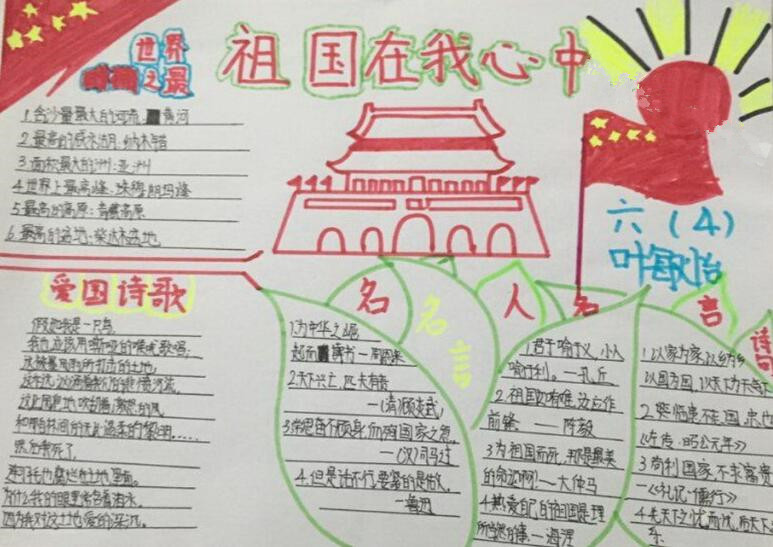 祖国在我心中
世界
之最
1.含沙量最大的河流:黄河
2.最高的咸水湖:纳木错
3.面积最大的洲:亚洲
4.世界上最高峰:珠穆朗玛峰
5.最高的高原:青藏高原
6.最高的盆地:柴达木盆地
六(4)
叶敏怡
爱国诗歌
假如我是一只鸟,
我也应该用嘶哑的喉咙歌唱:
这被暴风雨所打击的土地,
这永远汹涌着我们的悲愤的河流,
这无止息地吹刮着的激怒的风,
和那来自林间的无比温柔的黎明……
然后我死了,
连羽毛也腐烂在土地里面。
为什么我的眼里常含着泪水,
因为我对这土地爱的深沉。
名人名言
名言
诗句
1.为中华之崛
起而读书—周恩来
2.天下兴亡,匹夫有责
—(清)顾炎武
3.常思奋不顾身,而殉国家之急。
—(汉)司马迁
4.但是话不行,要紧的是做。
—鲁迅
1.君子喻于义,小人
喻于利。—孔丘
2.祖国如有难,汝应作
前锋 —陈毅
3.为祖国而死,那是最美
的命运啊!—大仲马
4.热爱自己的祖国是理
所当然的事—海涅
1.以家为家,以乡为乡,
以国为国,以天下为天下
2.临患不忘国,忠也
《左传·昭公元年》
3.苟利国家,不求富贵
—《礼记·儒行》
4.先天下之忧而忧,后天下